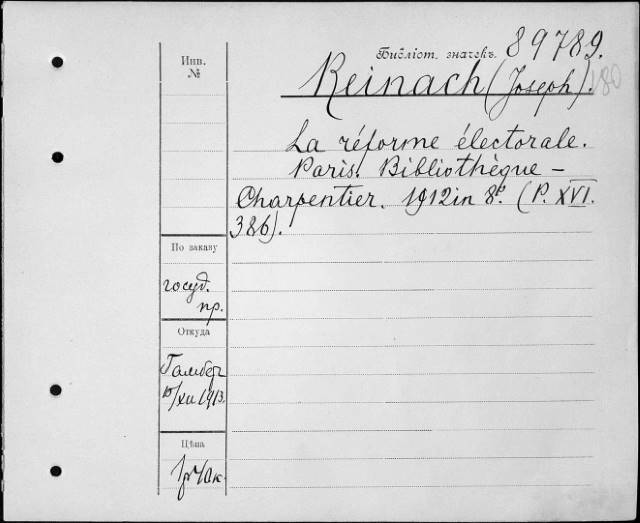 Библіот. значекъ. 89789.
180
Инв.
№
Reinach (Joseph).
La réforme électorale.
Paris. Bibliothèque –
Charpentier. 1912 in 8º. (P. XVI.
386).
По заказу
госуд.
пр.
Откуда
/XII 1913.
Цѣна